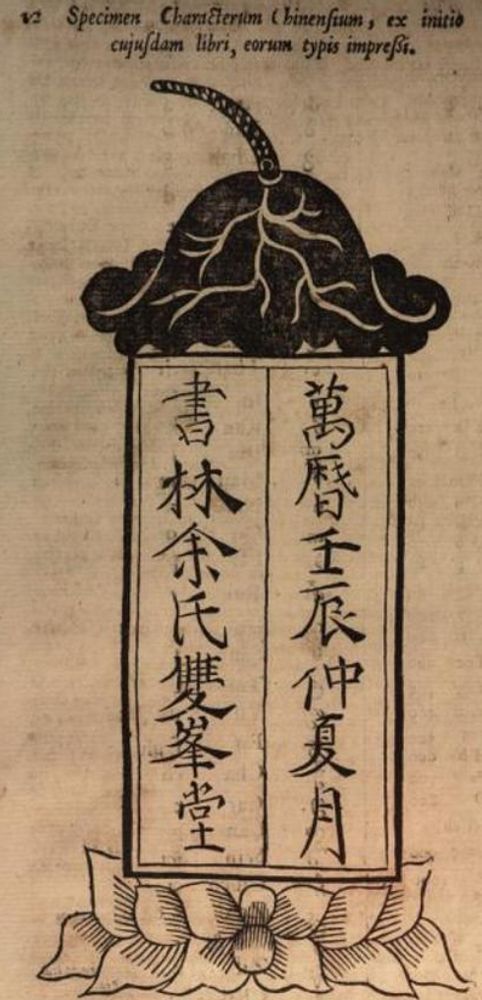 12 Specimen Characterum Chinensium, ex initio
cujusdam libri, eorum typis impressi.
萬曆壬辰仲夏月
書林余氏雙峯堂